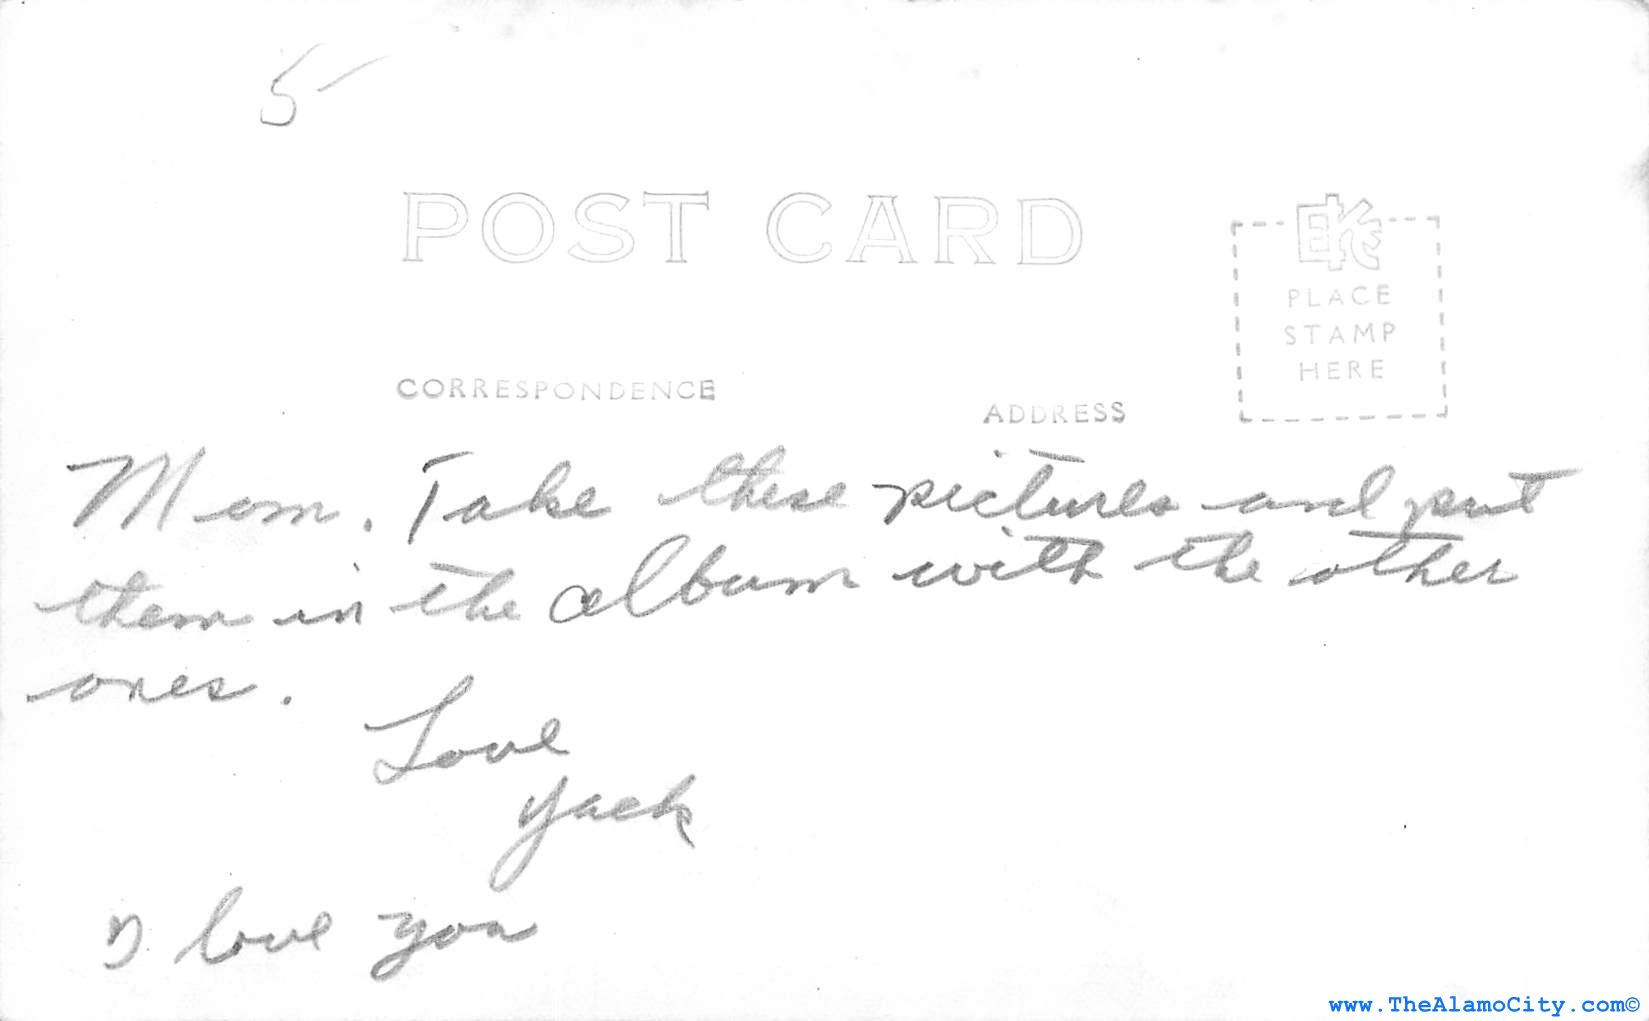 5-
POST CARD
EKC
PLACE
STAMP
HERE
CORRESPONDENCE
ADDRESS
Mom. Take these pictures and put
them in the album with the other
ones.
Love
Yack
I love you
www.TheAlamoCity.com©